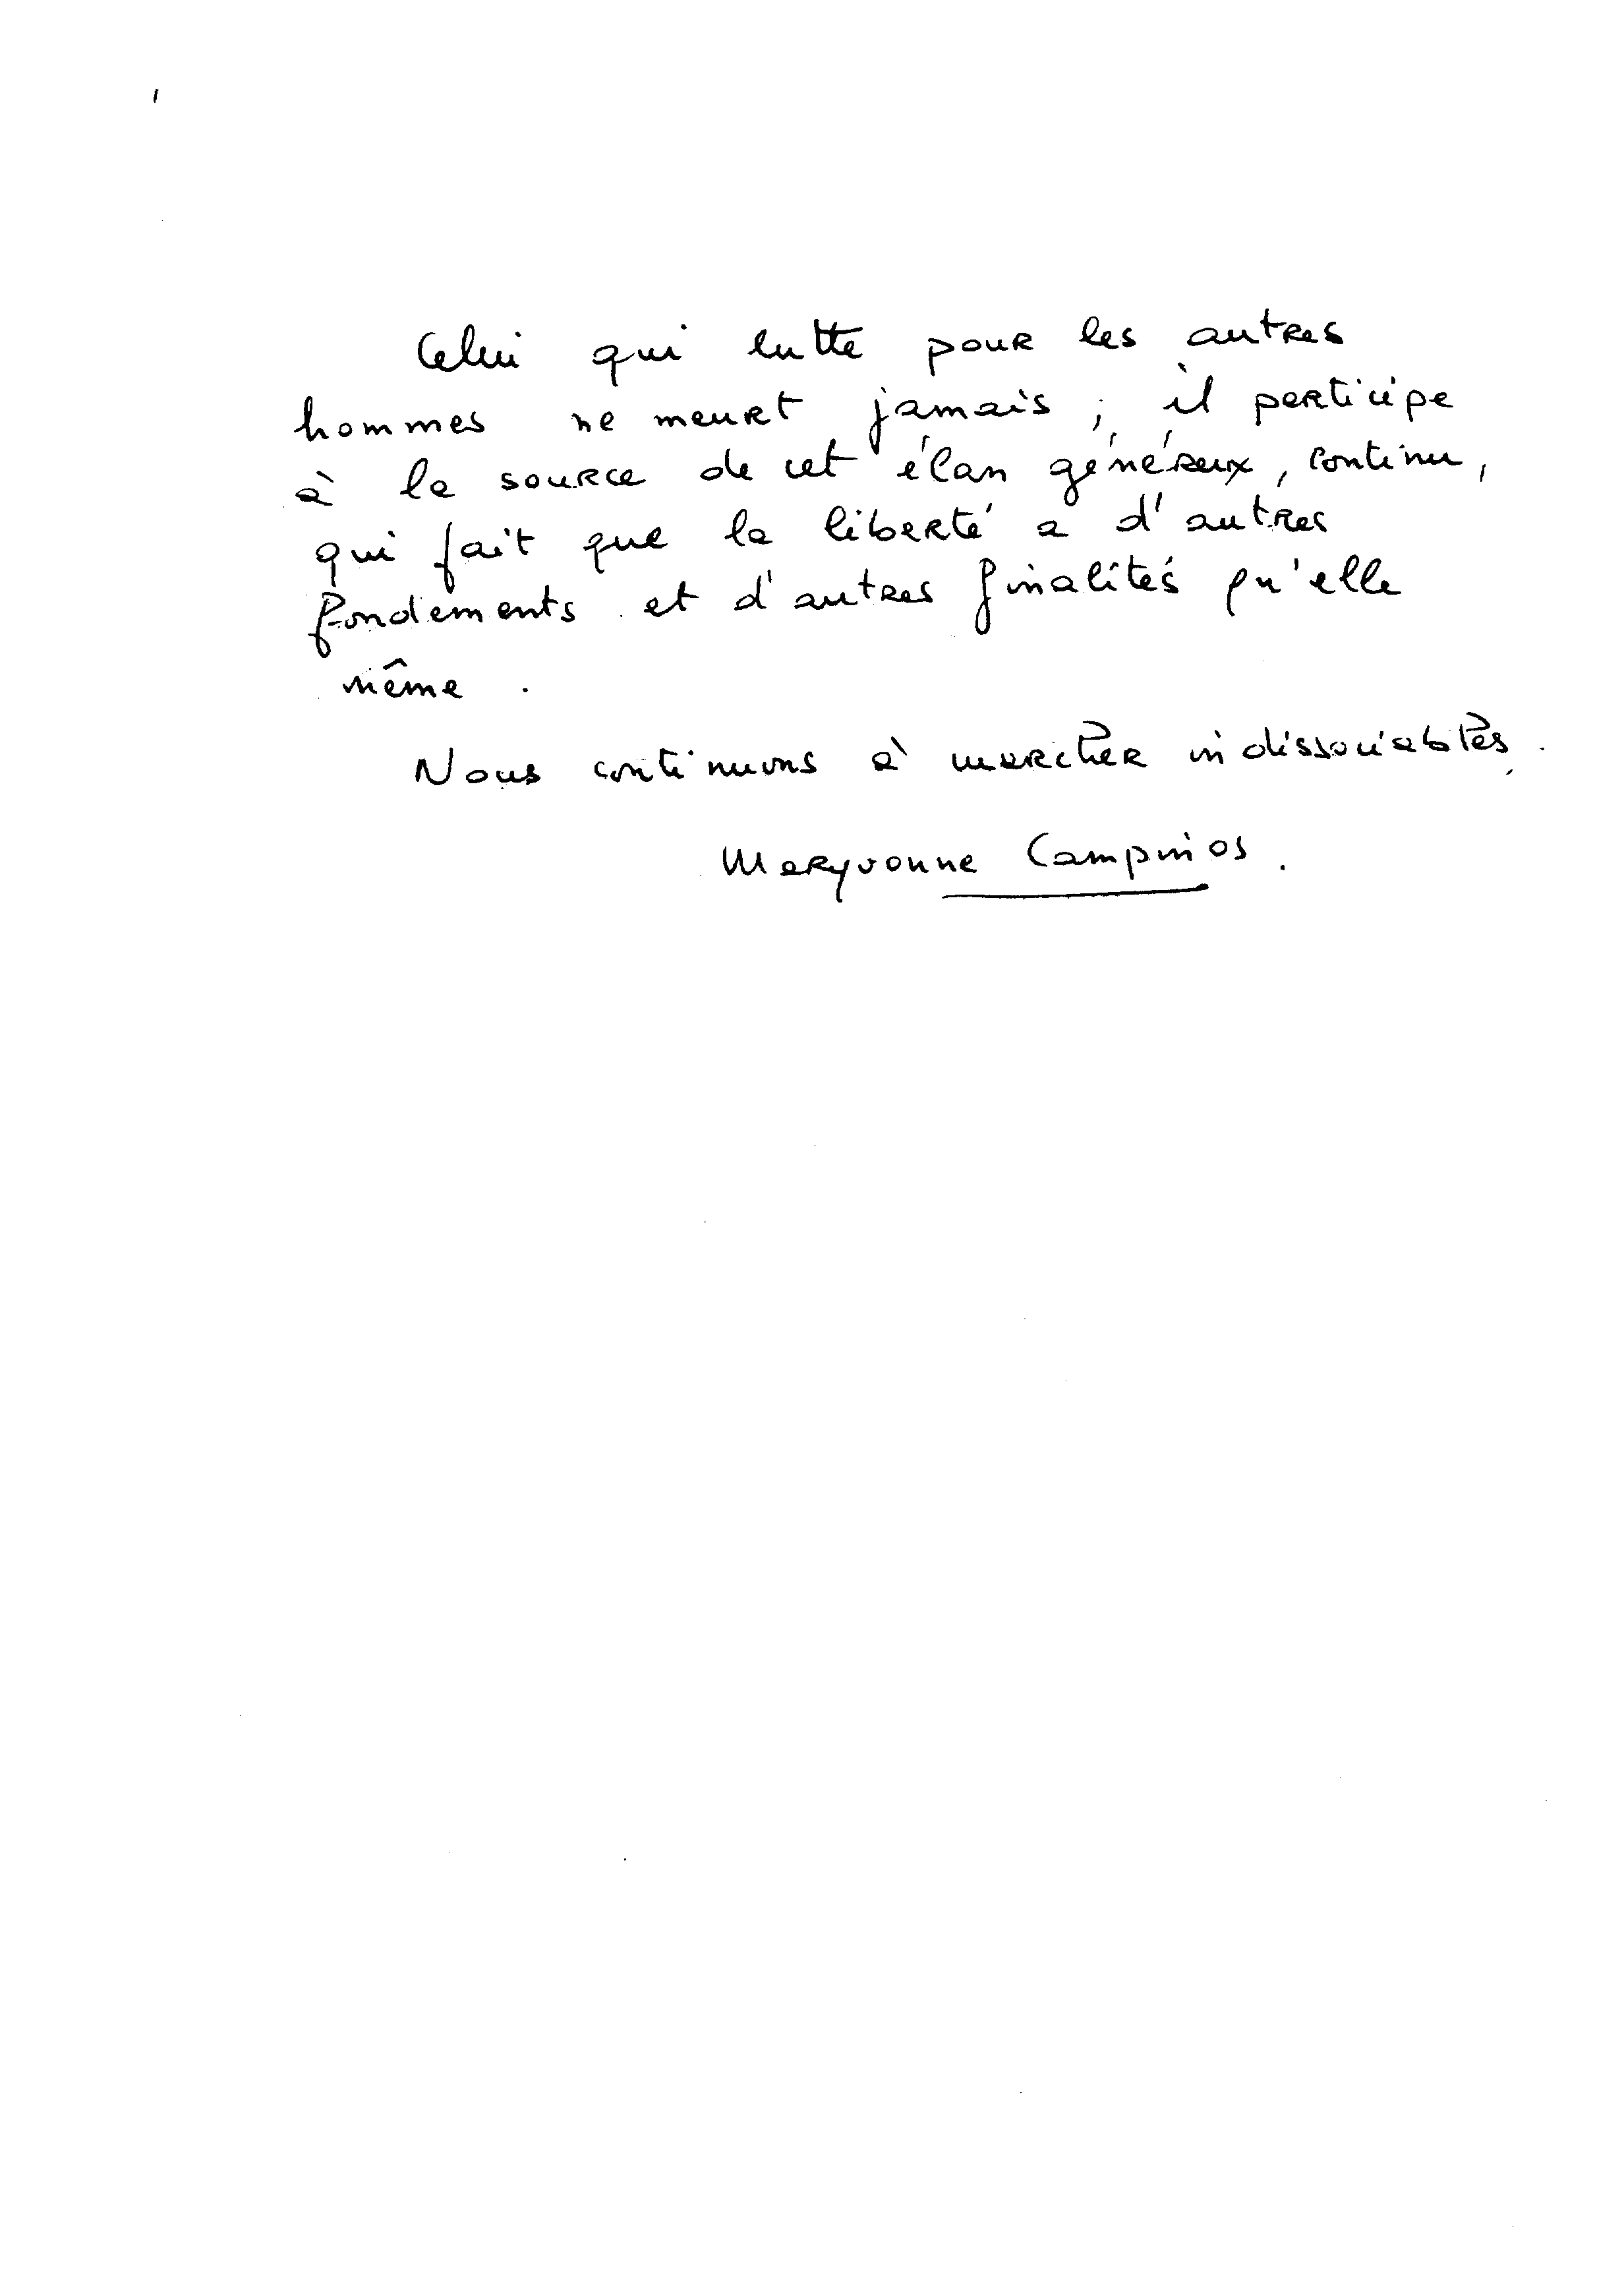 Celui qui lutte pour les autres
hommes ne meurt jamais ; il participe
à la source de cet élan généreux, continu,
qui fait que la liberté a d'autres
fondements et d'autres finalités qu'elle
même .
Nous continuons à marcher indissociables .
Maryvonne Campinos .